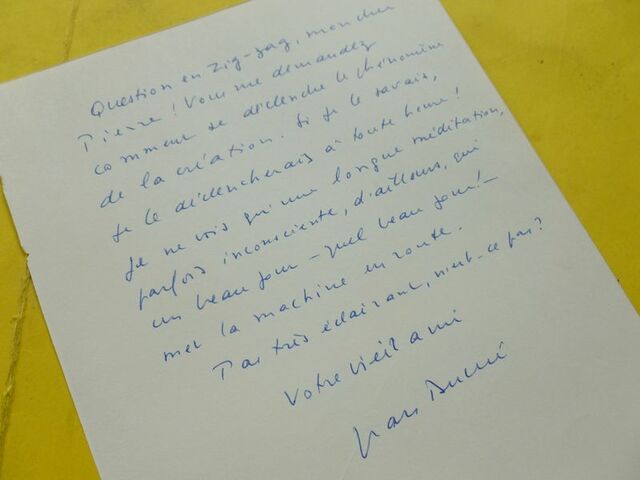 Question en zig-zag, mon cher
Pierre ! Vous me demandez
comment se déclenche le phénomène
de la création. Si je le savais,
je le déclencherais à toute heure !
Je ne vois qu'une longue méditation,
parfois inconsciente, d'ailleurs, qui
un beau jour – quel beau jour ! –
met la machine en route.
Pas très éclairant, n'est-ce pas ?
Votre vieil ami